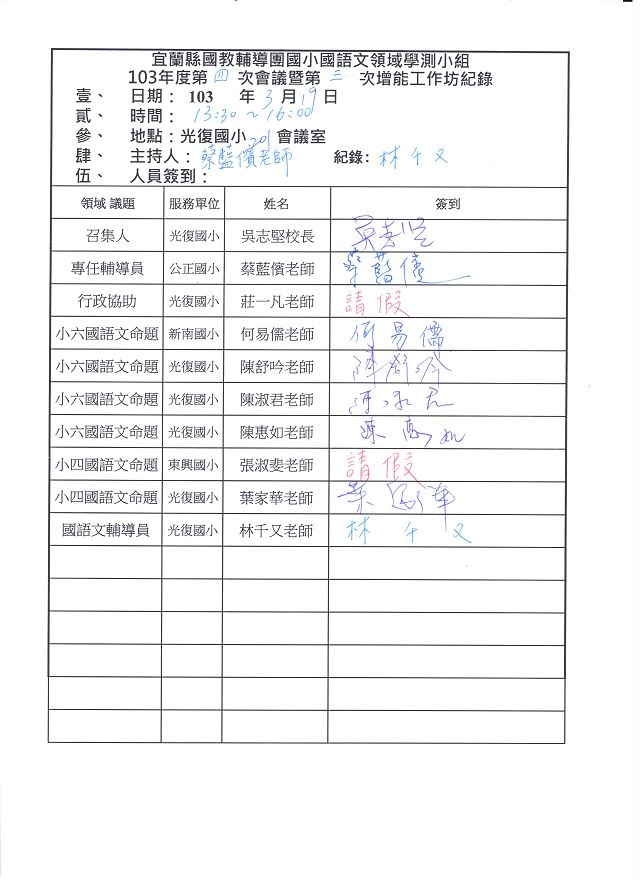 宜蘭縣國教輔導團國小國語文領域學測小組
103年度第 四 次會議暨第 三 次增能工作坊紀錄
壹、 日期： 103 年 3 月 19 日
貳、 時間： 13:30～16:00
參、 地點：光復國小 201 會議室
肆、 主持人：蔡藍儐老師 紀錄：林千又
伍、 人員簽到：
領域 議題 服務單位 姓名 簽到
召集人 光復國小 吳志堅校長 吳志堅
專任輔導員 公正國小 蔡藍儐老師 蔡藍儐
行政協助 光復國小 莊一凡老師 請假
小六國語文命題 新南國小 何易儒老師 何易儒
小六國語文命題 光復國小 陳舒吟老師 陳舒吟
小六國語文命題 光復國小 陳淑君老師 陳淑君
小六國語文命題 光復國小 陳惠如老師 陳惠如
小四國語文命題 東興國小 張淑斐老師 請假
小四國語文命題 光復國小 葉家華老師 葉家華
國語文輔導員 光復國小 林千又老師 林千又